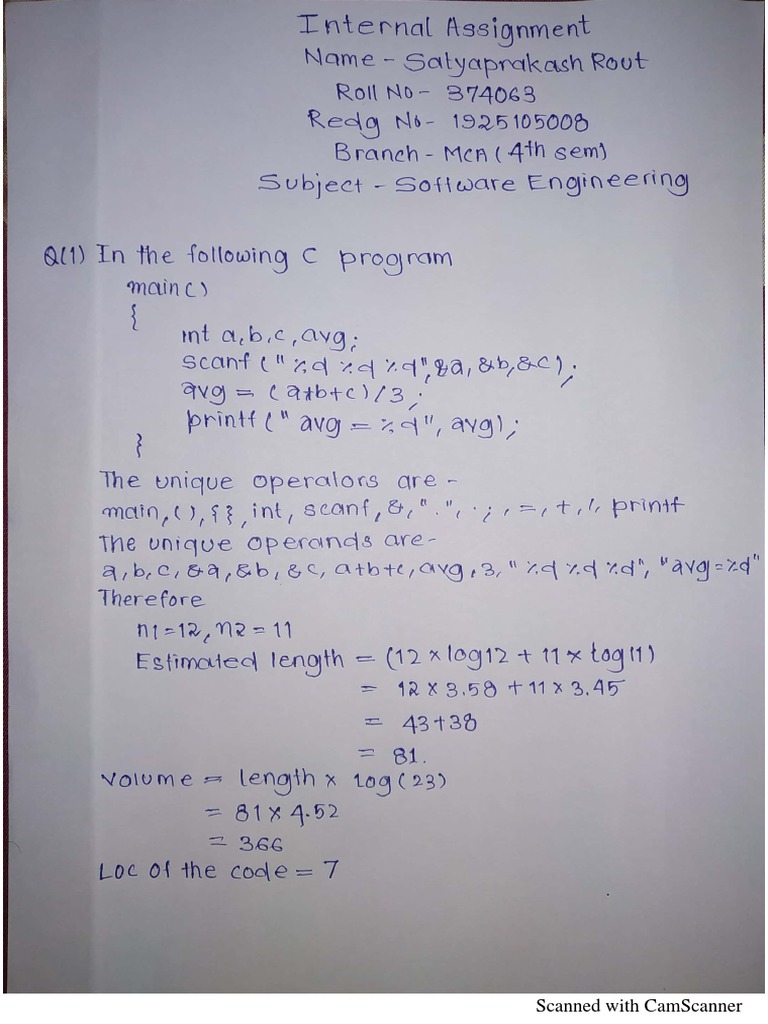 Internal Assignment
Name - Satyaprakash Rout
Roll No - 374063
Redg No - 1925105008
Branch - MCA (4th sem)
Subject - Software Engineering
Q(1) In the following C program
main()
{
int a,b,c,avg;
scanf ("%d %d %d",&a, &b,&c);
avg = (a+b+c)/3;
printf (" avg = %d", avg);
}
The unique operators are -
main, (), {}, int, scanf, &, ".", ; , =, +, /, printf
The unique operands are -
a, b, c, &a, &b, &c, a+b+c, avg, 3, "%d %d %d", "avg=%d"
Therefore
n1=12, n2=11
Estimated length = (12 × log12 + 11 × log 11)
= 12 × 3.58 + 11 × 3.45
= 43+38
= 81.
Volume = length × log(23)
= 81 × 4.52
= 366
Loc of the code = 7
Scanned with CamScanner